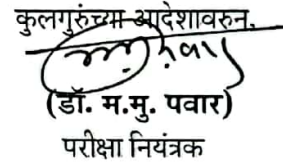 कुलगुरुंच्या आदेशावरुन,
(डॉ. म.मु. पवार)
परीक्षा नियंत्रक